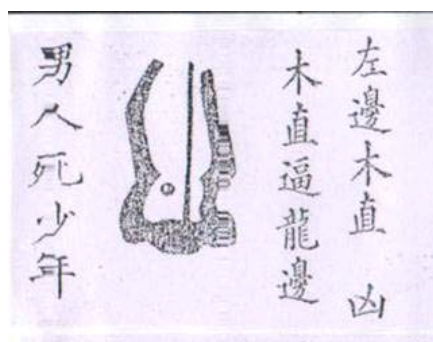 左邊木直 凶
木直逼龍邊
男人死少年